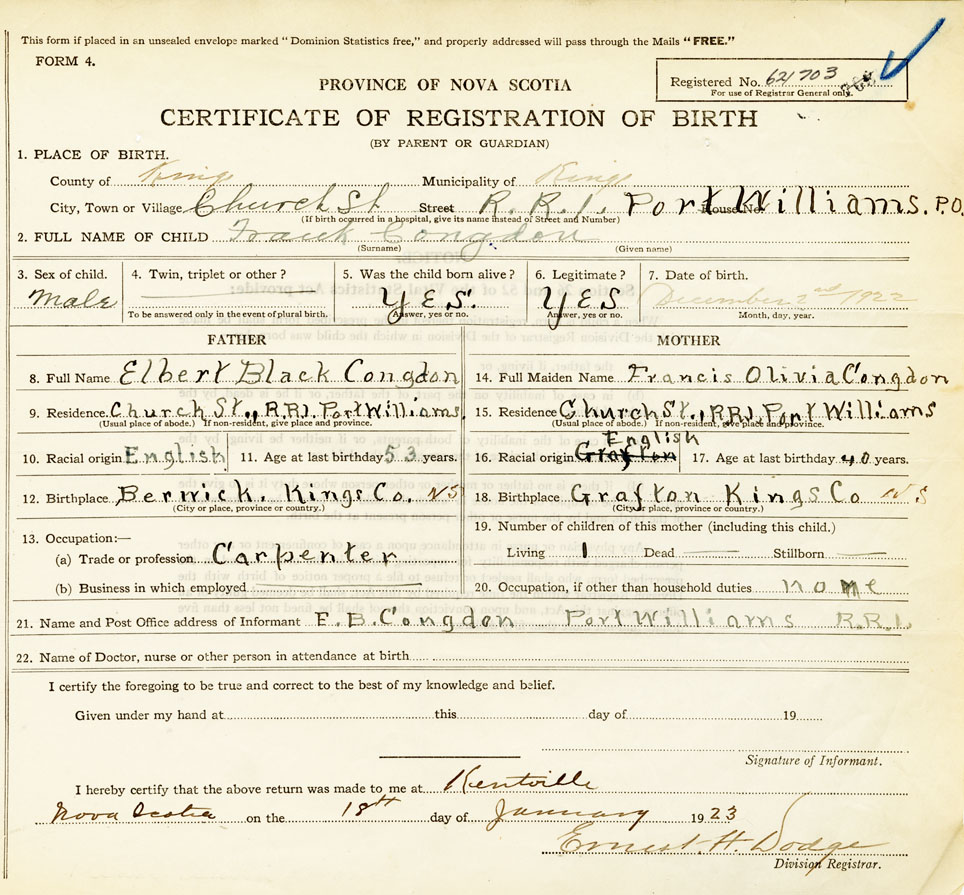 This form if placed in an unsealed envelope marked "Dominion Statistics free," and properly addressed will pass through the Mails "FREE."
FORM 4.
Registered No. 621703
For use of Registrar General only.
PROVINCE OF NOVA SCOTIA
CERTIFICATE OF REGISTRATION OF BIRTH
(BY PARENT OR GUARDIAN)
1. PLACE OF BIRTH.
County of Kings Municipality of Kings
City, Town or Village Church St Street R.R.1. Port Williams. P.O. House No.
(If birth occurred in a hospital, give its name instead of Street and Number)
2. FULL NAME OF CHILD Frank Congdon
(Surname) (Given name)
3. Sex of child. 4. Twin, triplet or other? 5. Was the child born alive? 6. Legitimate? 7. Date of birth.
Male YES. YES December 2nd 1922
To be answered only in the event of plural birth. Answer, yes or no. Answer, yes or no. Month, day, year.
FATHER MOTHER
8. Full Name Elbert Black Congdon 14. Full Maiden Name Francis Olivia Congdon
9. Residence Church St., R.R.1. Port Williams. 15. Residence Church St., R.R.1. Port Williams
(Usual place of abode.) If non-resident, give place and province. (Usual place of abode.) If non-resident, give place and province.
English
10. Racial origin English 11. Age at last birthday 53 years. 16. Racial origin Grafton 17. Age at last birthday 40 years.
12. Birthplace Berwick. Kings Co. NS 18. Birthplace Grafton Kings Co NS
(City or place, province or country.) (City or place, province or country.)
13. Occupation:— 19. Number of children of this mother (including this child.)
(a) Trade or profession Carpenter Living 1 Dead — Stillborn —
(b) Business in which employed 20. Occupation, if other than household duties none
21. Name and Post Office address of Informant E.B. Congdon Port Williams R.R.1.
22. Name of Doctor, nurse or other person in attendance at birth
I certify the foregoing to be true and correct to the best of my knowledge and belief.
Given under my hand at this day of 19
Signature of Informant.
I hereby certify that the above return was made to me at Kentville
Nova Scotia on the 18th day of January 1923
Ernest. H. Dodge
Division Registrar.